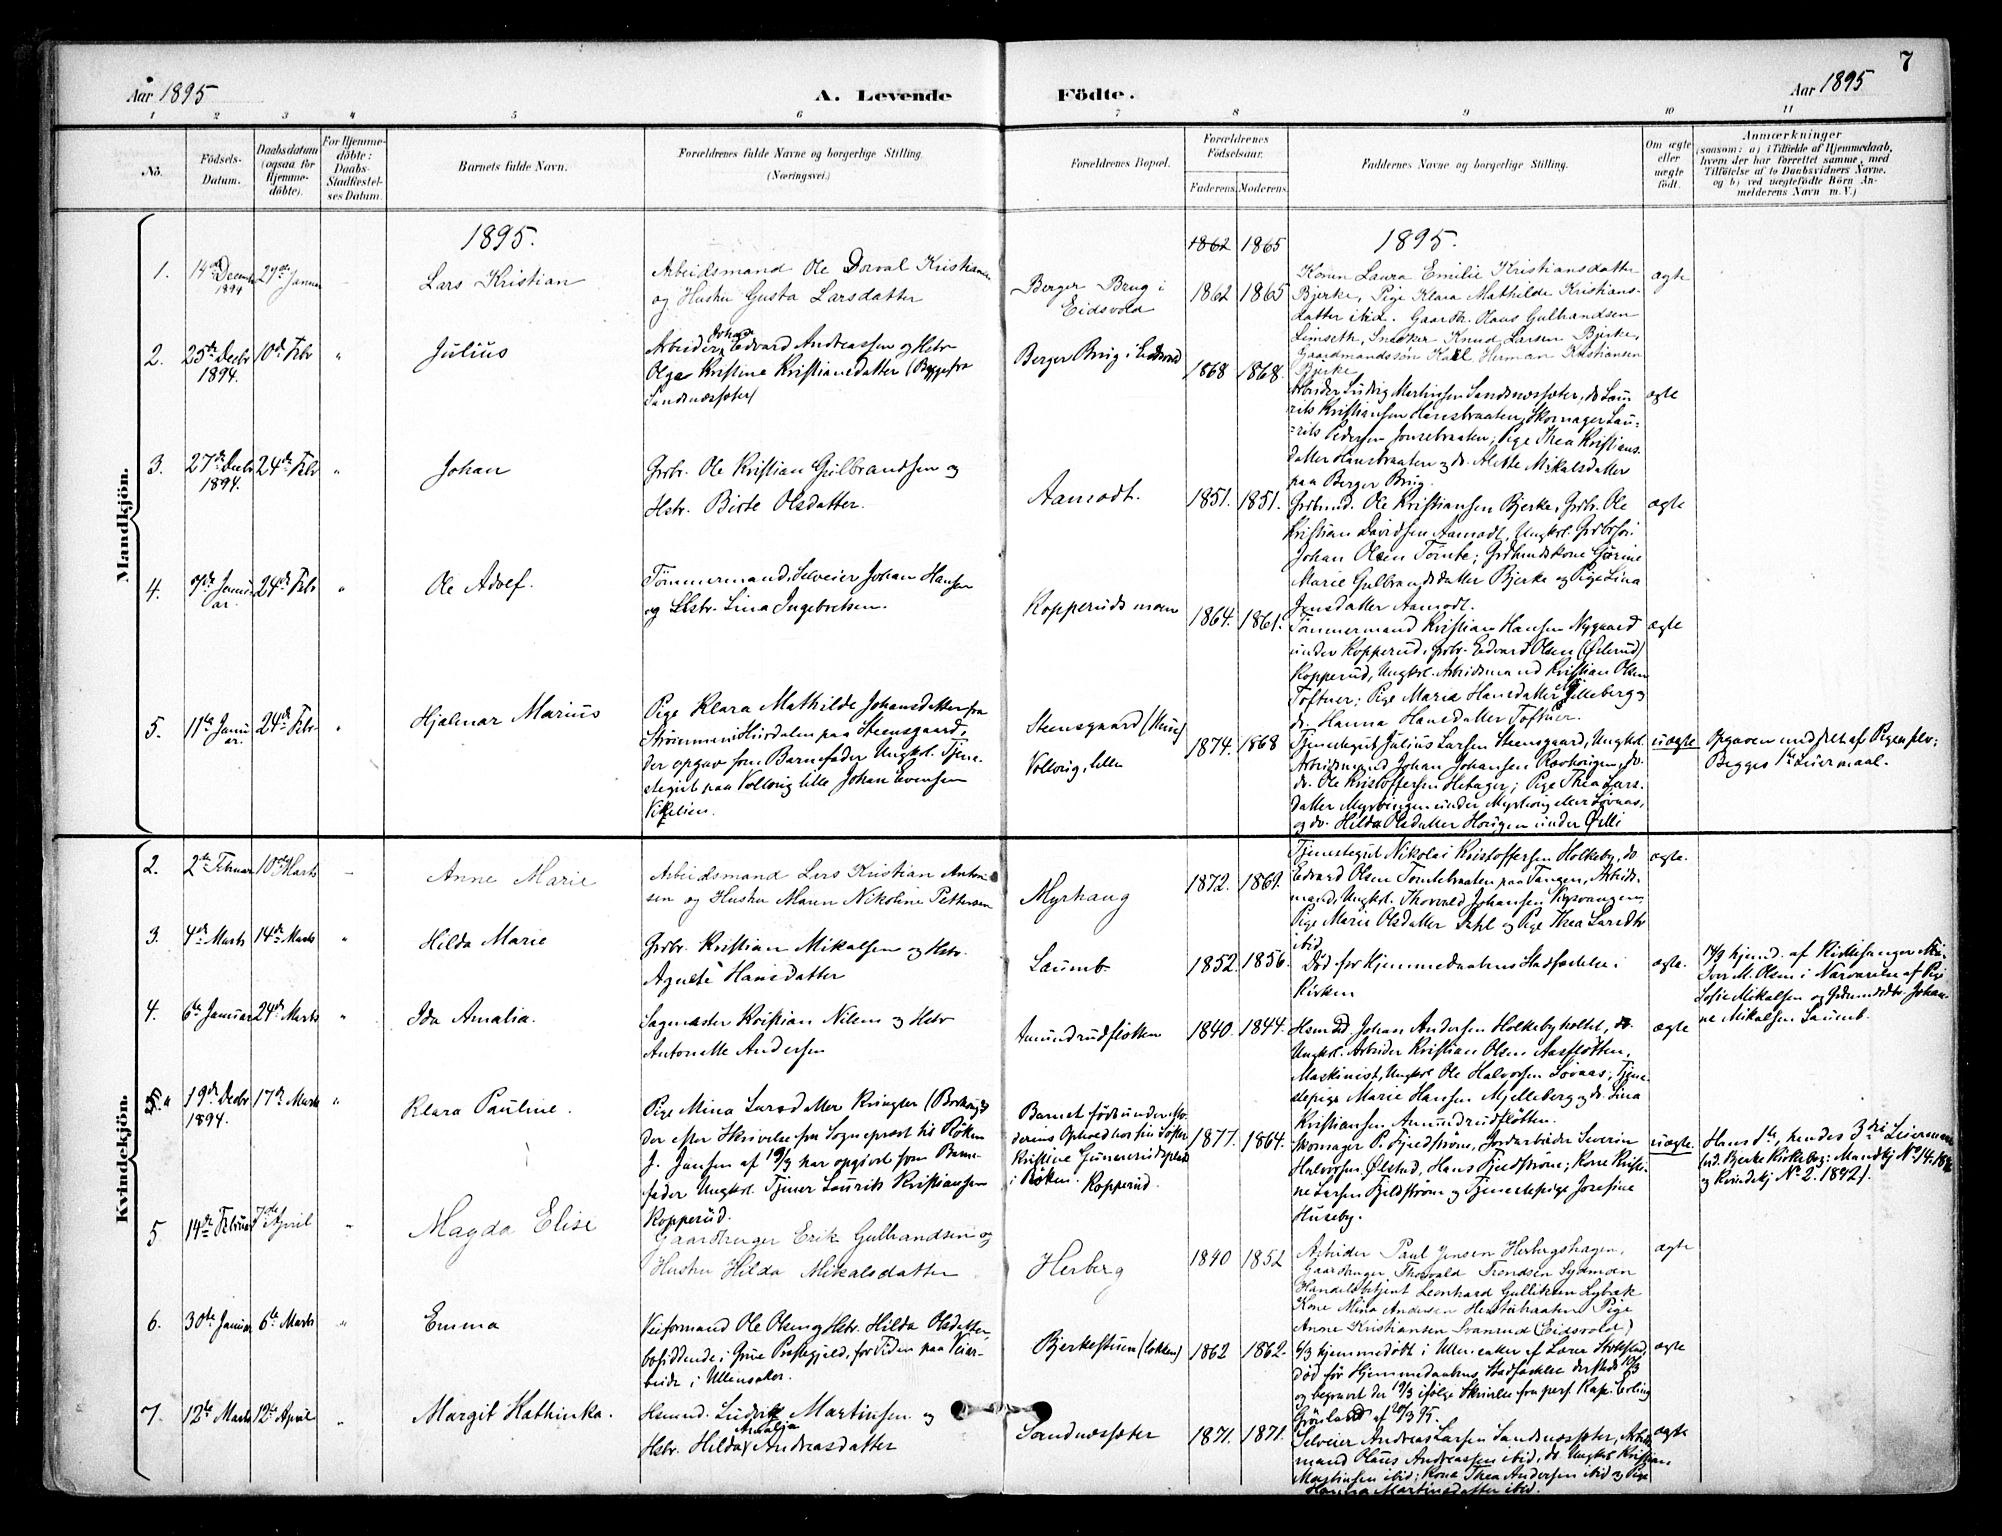 7
Aar 1895
A. Levende Födte.
Aar 1895
1 2 3 4 5 6 7 8 9 10 11
No.
Födsels-Datum.
Daabsdatum (ogsaa for Hjemmedöbte).
For Hjemmedöbte: Daabs-Stadfæstelses Datum.
Barnets fulde Navn.
Forældrenes fulde Navne og borgerlige Stilling. (Næringsvei.)
Forældrenes Bopæl.
Forældrenes Födselsaar.
Faderens. Moderens.
Faddernes Navne og borgerlige Stilling.
Om ægte eller uægte födt.
Anmærkninger
(saasom: a) i Tilfælde af Hjemmedaab, hvem der har forrettet samme, med Tilföielse af to Daabsvidners Navne, og b) ved uægtefödte Börn Anmelderens Navn m. V.)
Mandkjön.
1895.
1862 1865
1895.
1. 14de Decemb 1894 27de Januar
Lars Kristian
Arbeidsmand Ole Dorval Kristiansen
og Hustru Gusta Larsdatter
Berger Brug i
Eidsvold
1862 1865
Konen Laura Emilie Kristiansdatter
Bjerke, Pige Klara Mathilde Kristians-
datter ibid. Gaardbr. Hans Gulbrandsen
Limseth, Snedker Knud Larsen Bjerke,
Gaardmandssøn Karl Herman Kristiansen
Bjerke
ægte
2. 25de Decbr 1894. 10de Febr "
Julius
Arbeider Johan Edvard Andreassen og Hstr
Olga Kristine Kristiansdatter (Begge fra
Sandnessæter)
Berger Brug i Eidsvold
1868 1868.
Arbeider Ludvig Martinsen Sandnessæter, do Lau-
rits Kristiansen Hansebraaten, Skomager Lau-
rits Pedersen Jonsebraaten; Pige Thea Kristians-
datter Hansebraaten og do. Alette Mikalsdatter
paa Berger Brug.
ægte
3. 27de Decbr 1894. 24de Febr "
Johan
Grdbr. Ole Kristian Gulbrandsen og
Hstr. Birte Olsdatter.
Aamodt.
1851. 1851.
Grdmd. Ole Kristiansen Bjerke, Grdbr. Ole
Kristian Davidsen Aamodt, Ungkrl. Grdbrsøn
Johan Olsen Tømte; Grdmdskone Gørine
Marie Gulbrandsdatter Bjerke og Pige Lina
Jensdatter Aamodt.
ægte
4. 7de Januar. 24de Febr "
Ole Adolf.
Tømmermand, Selveier Johan Hansen
og Hstr. Lina Ingebretsen.
Kopperudsmoen
1864. 1861.
Tømmermand Kristian Hansen Nygaard
under Kopperud, Grdbr. Edvard Olsen (Ølerud)
Kopperud, Ungkrl. Arbeidsmand Kristian Olsen
Toftner; Pige Maria Hansdatter Mjelleberg og
do. Hanna Hansdatter Toftner.
ægte
5. 11te Januar. 24de Febr "
Hjalmar Marius
Pige Klara Mathilde Johansdatter fra
Strømmen i Hurdalen paa Steensgaard,
der opgav som Barnefader Ungkrl. Tjene-
stegut paa Vollaug lille Johan Evensen
Steensgaard (Hun)
Vollaug, lille
1874. 1868
Tjenestegut Julius Larsen Steensgaard, Ungkrl.
Arbeidsmand Johan Johansen Ravhaugen, do.
do. Ole Kristoffersen Hetager; Pige Thea Lars-
datter Myrhaugen under Myrhaug eller Løvaas,
og do. Hilda Olsdatter Haugen under Ølli
uægte
Opgaven indfalt af Pigen selv;
Begges 1ste Leiermaal.
Kvindekjön.
2. 2de Februar 10de Marts
Anne Marie
Arbeidsmand Lars Kristian Anton-
sen og Hustru Maren Nikoline Pettersen
Myrhaug
1872. 1869.
Tjenestegut Nikolai Kristoffersen Holkeby, do
Edvard Olsen Tømtebraaten paa Tangen, Arbeids-
mand, Ungkrl. Thorvald Johansen Kopvangen,
Pige Marie Olsdatter Dahl og Pige Thea Larsdtr
ibid
ægte.
3. 4de Marts 14de Marts "
Hilda Marie
Grdbr. Kristian Mikalsen og Hstr.
Agnete Hansdatter
Laumb.
1852. 1856.
Død før Hjemmedaabens Stadfæstelse i
Kirken
ægte.
14/3 hjemd. af Kirkesanger
Iver M. Olsen i Nærværelse af Pige
Sofie Mikalsen og Grdmdsdtr. Johan-
ne Mikalsen Laumb.
4. 6te Januar 24de Marts "
Ida Amalia.
Sagmester Kristian Nilsen og Hstr
Antonette Andersen
Amundrudfløtten
1840. 1844.
Hsmd. Johan Andersen Holkebyholtet, do.
Ungkrl. Arbeider Kristian Olsen Aasfløtten,
Maskinist, Ungkrl. Ole Halvorsen Løvaas; Tjene-
stepige Marie Hansen Mjelleberg og do. Lina
Kristiansen Amundrudfløtten.
ægte
5. 19de Decbr 1894. 17de Marts "
Klara Pauline.
Pige Mina Larsdatter Kringler (Borhaug)
der efter Skrivelse fra Sogneprest til Røken
J. Jansen af 19/3 har opgivet som Barne-
fader Ungkrl. Tjener Laurits Kristiansen
Kopperud.
Barnet født under Mo-
derens Ophold hos sin Søster
Kristine Gunnerudsplads
i Røken. Kopperud.
1877. 1864.
Skomager P. Fjeldstrøm, Jordarbeider Severin
Halvorsen Ølstad, Hans Fjeldstrøm; Kone Kristi-
ne Larsen Fjeldstrøm og Tjenestepige Josefine
Huseby.
uægte.
Hans 1ste, hendes 3die Leiermaal
(vid. Bjerke Kirkebog: Mandkj No 14. 18
og Kvindekj No 2. 1892).
5 14de Februar 7de April "
Magda Elise
Gaardbruger Erik Gulbrandsen og
Hustru Hilda Mikalsdatter
Herberg
1840 1852
Arbeider Paul Jensen Herbergshagen,
Gaardbruger Thorvald Trondsen Sydmoen
Handelsbetjent Leonhard Gulliksen Lybæk
Kone Mina Andersen Herstubraaten, Pige
Anne Kristiansen Svanrud (Eidsvold)
ægte
6. 30te Januar 6te Marts "
Emma
Veiformand Ole Olsen og Hstr. Hilda Olsdatter,
bosiddende i Grue Prestegjeld, for Tiden paa Veiar-
beide i Ullensaker.
Bjerkestuen (Lokken)
1862 1862.
6/3 hjemmedøbt i Ullensaker af Lærer Holstad,
død før Hjemmedaabens Stadfæstelse dersteds 10/3
og begravet der 19/3 ifølge Skrivelse fra pers. Kap. Erling
Grønland af 20/3 95.
ægte
7. 12te Marts 12te April "
Margit Kathinka.
Hsmnd. Ludvik Martinsen og
Hstr. Hilda Amalia Andreasdatter
Sandnessæter
1871. 1871.
Selveier Andreas Larsen Sandnessæter, Arbeids-
mand Olaus Andreassen ibid, do Ungkrl Kristian
Martinsen ibid; Kona Thea Andersen ibid og Pige
Hanna Martinsdatter ibid.
ægte